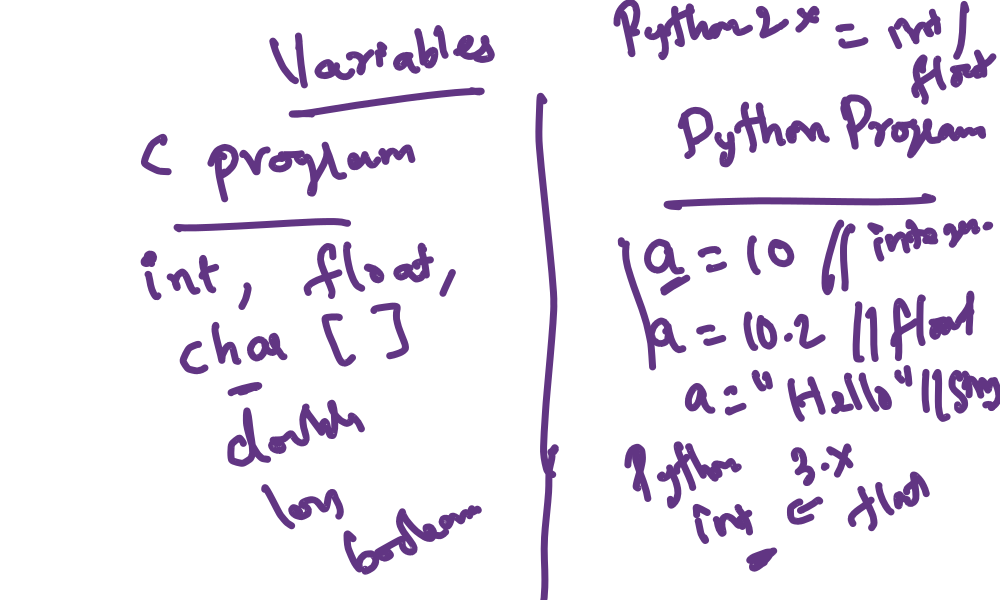 Variables
C program
int, float,
char [ ]
double
long
boolean
Python 2x = int /
float
Python Program
a = 10 // integer.
a = 10.2 // float
a = "Hello" // String
Python 3.x
int float